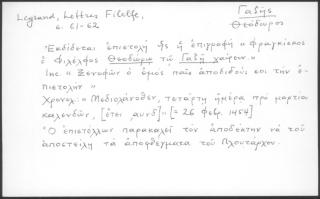 Legrand, Lettres Filelfe, Γαζῆς
σ. 61-62 Θεόδωρος
Ἐκδίδεται ἐπιστολὴ ἧς ἡ ἐπιγραφὴ "Φραγκίσκος
ὁ Φιλέλφος Θεοδώρῳ τῷ Γαζῇ χαίρειν."
Inc. "Ξενοφῶν ὁ ἐμὸς παῖς ἀποδιδούς σοι τὴν ἐ-
πιστολὴν"
Χρονολ: "Μεδιολάνοθεν, τετάρτῃ ἡμέρᾳ πρὸ μαρτίων
καλενδῶν, [ἔτει ,αυνδ]" [= 26 Φεβ. 1454]
Ὁ ἐπιστέλλων παρακαλεῖ τὸν ἀποδέκτην νὰ τοῦ
ἀποστείλῃ τὰ ἀποφθέγματα τοῦ Πλουτάρχου.